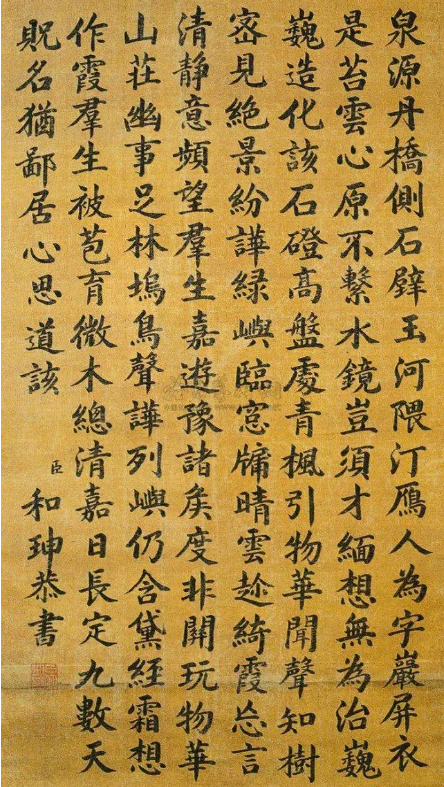 泉源丹橋側石壁玉河隈汀鴈人為字巖屏衣
是苔雲心原不繫水鏡豈須才緬想無為治巍
巍造化該石磴高盤處青楓引物華聞聲知樹
密見絶景紛譁緑嶼臨窓牖晴雲趂綺霞忘言
清靜意頻望羣生嘉遊豫諸矦度非關玩物華
山莊幽事足林塢鳥聲譁列嶼仍含黛經霜想
作霞羣生被苞育微木總清嘉日長定九數天
貺名猶鄙居心思道該 臣和珅恭書